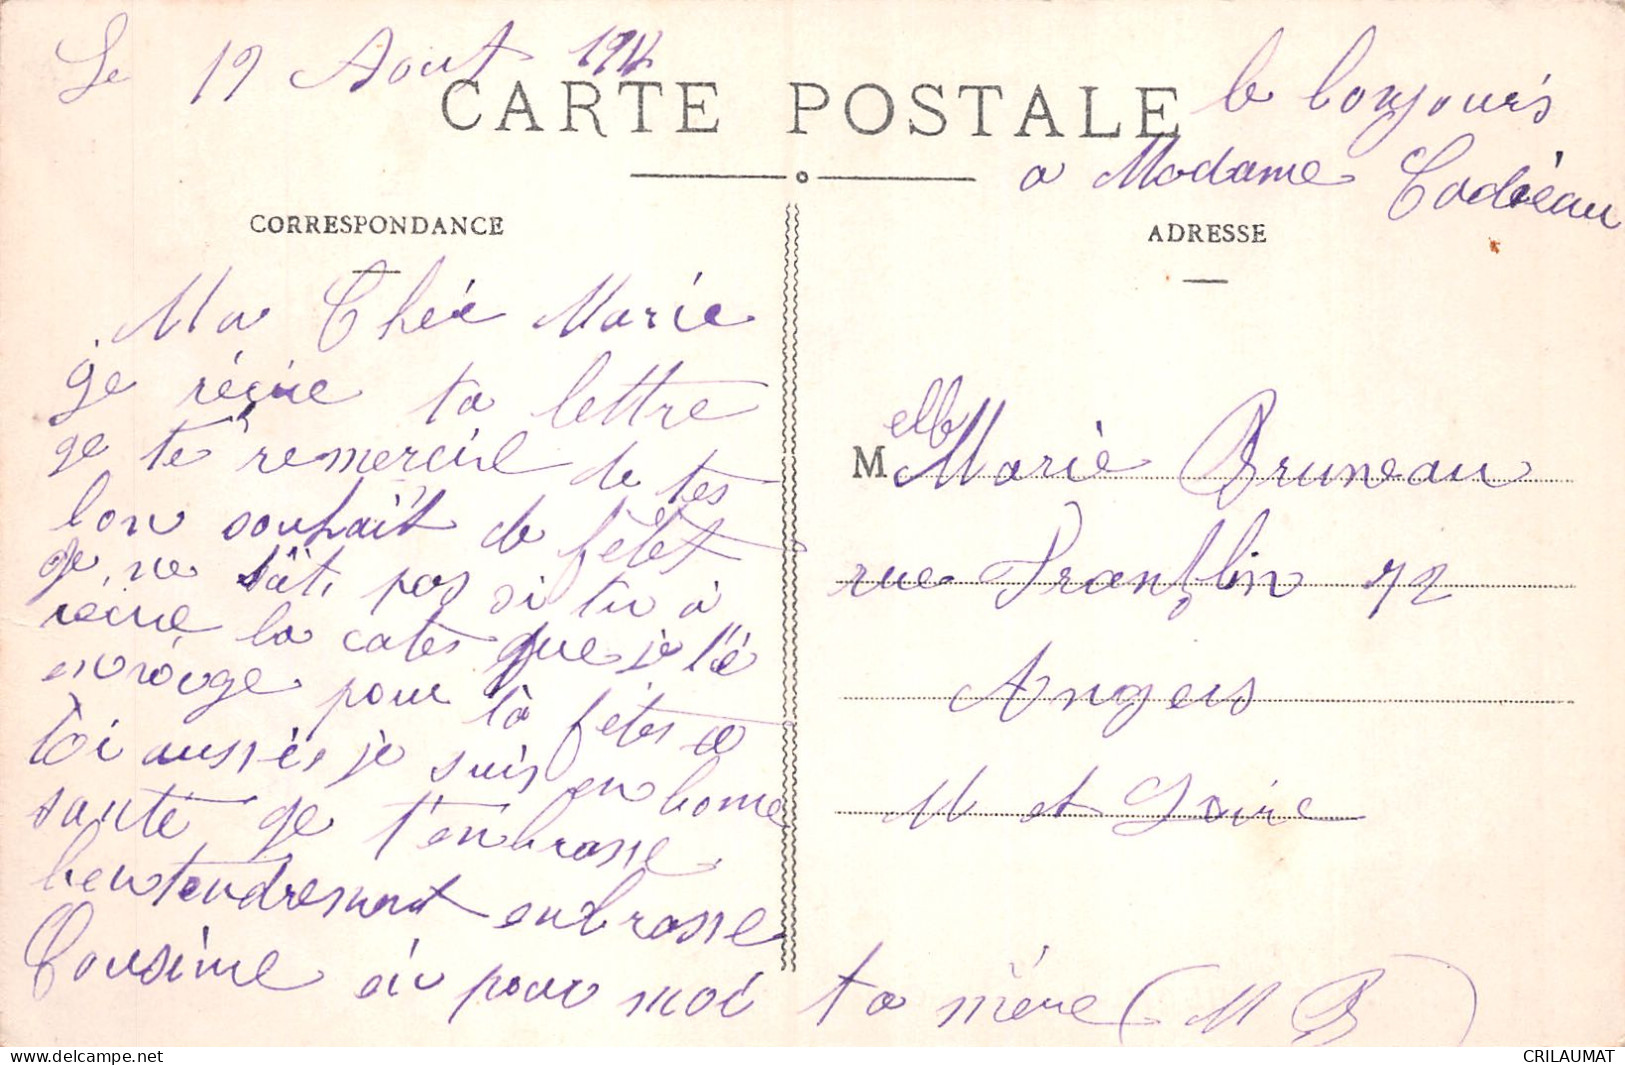 Le 19 Aout 191
CARTE POSTALE
le bonjours
a Madame Cadieau
CORRESPONDANCE
ADRESSE
Ma Chée Marie
je réçue ta lettre
ge te remercire de tes
bon souhait de fêtet
ge ne sait pas si tu à
récue la cates que je t'é
envoiuge pour ta fêtes et
toi aussies je suis en bonne
santé ge t'enbrasse
bentendrement enbrasse
Cousine
pour moi ta mère (M B)
Melle Marie Bruneau
rue Franklin 72
Angers
M et Loire
CRILAUMAT